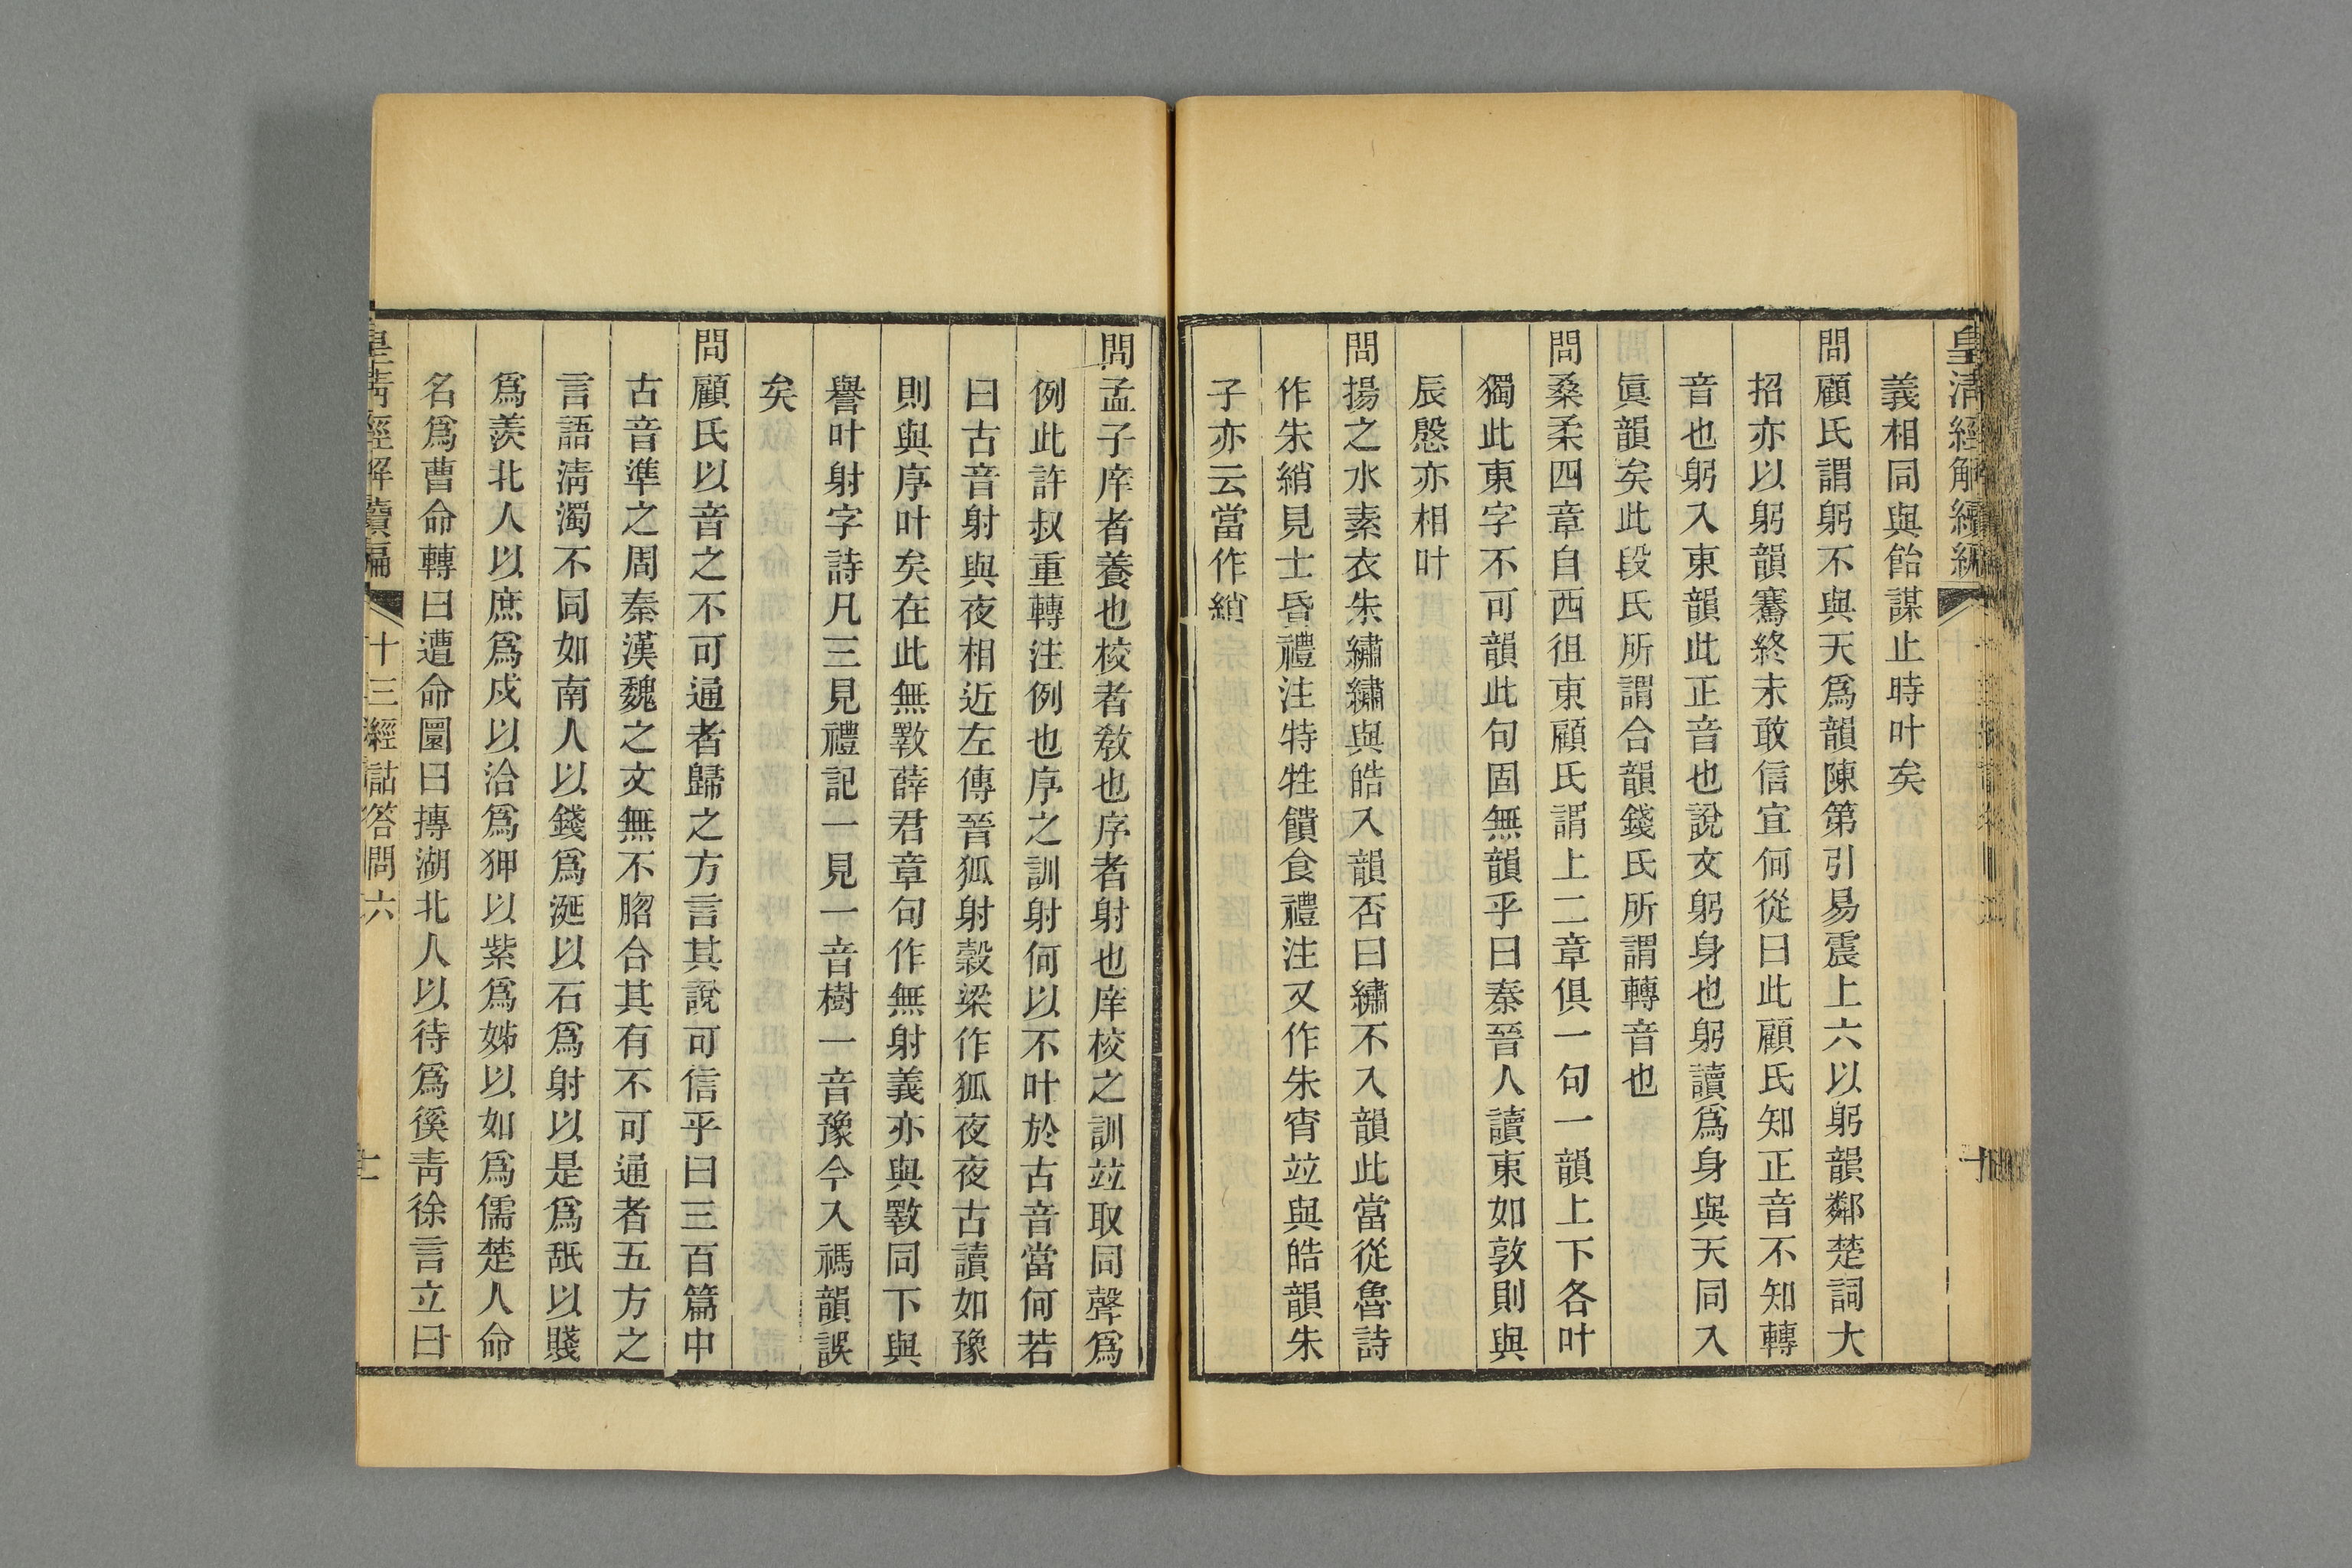 皇清經解續編
義相同與飴謀止時叶矣
問顧氏謂躬不與天爲韻陳第引易震上六以躬韻鄰楚詞大
招亦以躬韻騫終未敢信宜何從曰此顧氏知正音不知轉
音也躬入東韻此正音也說文躬身也躬讀爲身與天同入
眞韻矣此段氏所謂合韻錢氏所謂轉音也
問桑柔四章自西徂東顧氏謂上二章俱一句一韻上下各叶
獨此東字不可韻此句固無韻乎曰秦晉人讀東如敦則與
辰慇亦相叶
問揚之水素衣朱繡繡與皓入韻否曰繡不入韻此當從魯詩
作朱綃見士昏禮注特牲饋食禮注又作朱宵竝與皓韻朱
子亦云當作綃
問孟子庠者養也校者敎也序者射也庠校之訓竝取同聲爲
例此許叔重轉注例也序之訓射何以不叶於古音當何若
曰古音射與夜相近左傳晉狐射穀梁作狐夜夜古讀如豫
則與序叶矣在此無斁薛君章句作無射義亦與斁同下與
譽叶射字詩凡三見禮記一見一音樹一音豫今入禡韻誤
矣
問顧氏以音之不可通者歸之方言其說可信乎曰三百篇中
古音準之周秦漢魏之文無不脗合其有不可通者五方之
言語淸濁不同如南人以錢爲涎以石爲射以是爲舐以賤
爲羨北人以庶爲戍以洽爲狎以紫爲姊以如爲儒楚人命
名爲曹命轉曰遭命圜曰摶湖北人以待爲徯靑徐言立曰
皇淸經解續編 十三經詁答問六